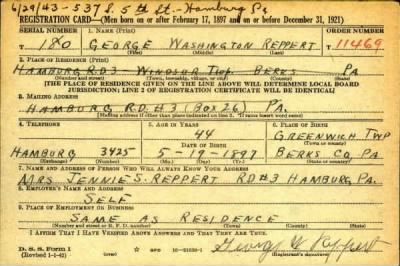 6/29/43 - 537 S. 5th St. - Hamburg Pa
REGISTRATION CARD—(Men born on or after February 17, 1897 and on or before December 31, 1921)
SERIAL NUMBER 1. NAME (Print) ORDER NUMBER
T 180 GEORGE WASHINGTON REPPERT 11469
(First) (Middle) (Last)
2. PLACE OF RESIDENCE (Print)
HAMBURG RD3 WINDSOR TWP. BERKS PA
(Number and street) (Town, township, village, or city) (County) (State)
[THE PLACE OF RESIDENCE GIVEN ON THE LINE ABOVE WILL DETERMINE LOCAL BOARD
JURISDICTION; LINE 2 OF REGISTRATION CERTIFICATE WILL BE IDENTICAL]
3. MAILING ADDRESS
HAMBURG RD.#3 (BOX 26) PA.
[Mailing address if other than place indicated on line 2. If same insert word same]
4. TELEPHONE 5. AGE IN YEARS 6. PLACE OF BIRTH
44 GREENWICH TWP
DATE OF BIRTH (Town or county)
HAMBURG 3425 5-19-1897 BERKS CO. PA.
(Exchange) (Number) (Mo.) (Day) (Yr.) (State or country)
7. NAME AND ADDRESS OF PERSON WHO WILL ALWAYS KNOW YOUR ADDRESS
MRS JENNIE S. REPPERT RD#3 HAMBURG, PA.
8. EMPLOYER'S NAME AND ADDRESS
SELF
9. PLACE OF EMPLOYMENT OR BUSINESS
SAME AS RESIDENCE
(Number and street or R. F. D. number) (Town) (County) (State)
I AFFIRM THAT I HAVE VERIFIED ABOVE ANSWERS AND THAT THEY ARE TRUE.
D. S. S. Form 1
(Revised 1-1-42) George W Reppert
(Registrant's signature)